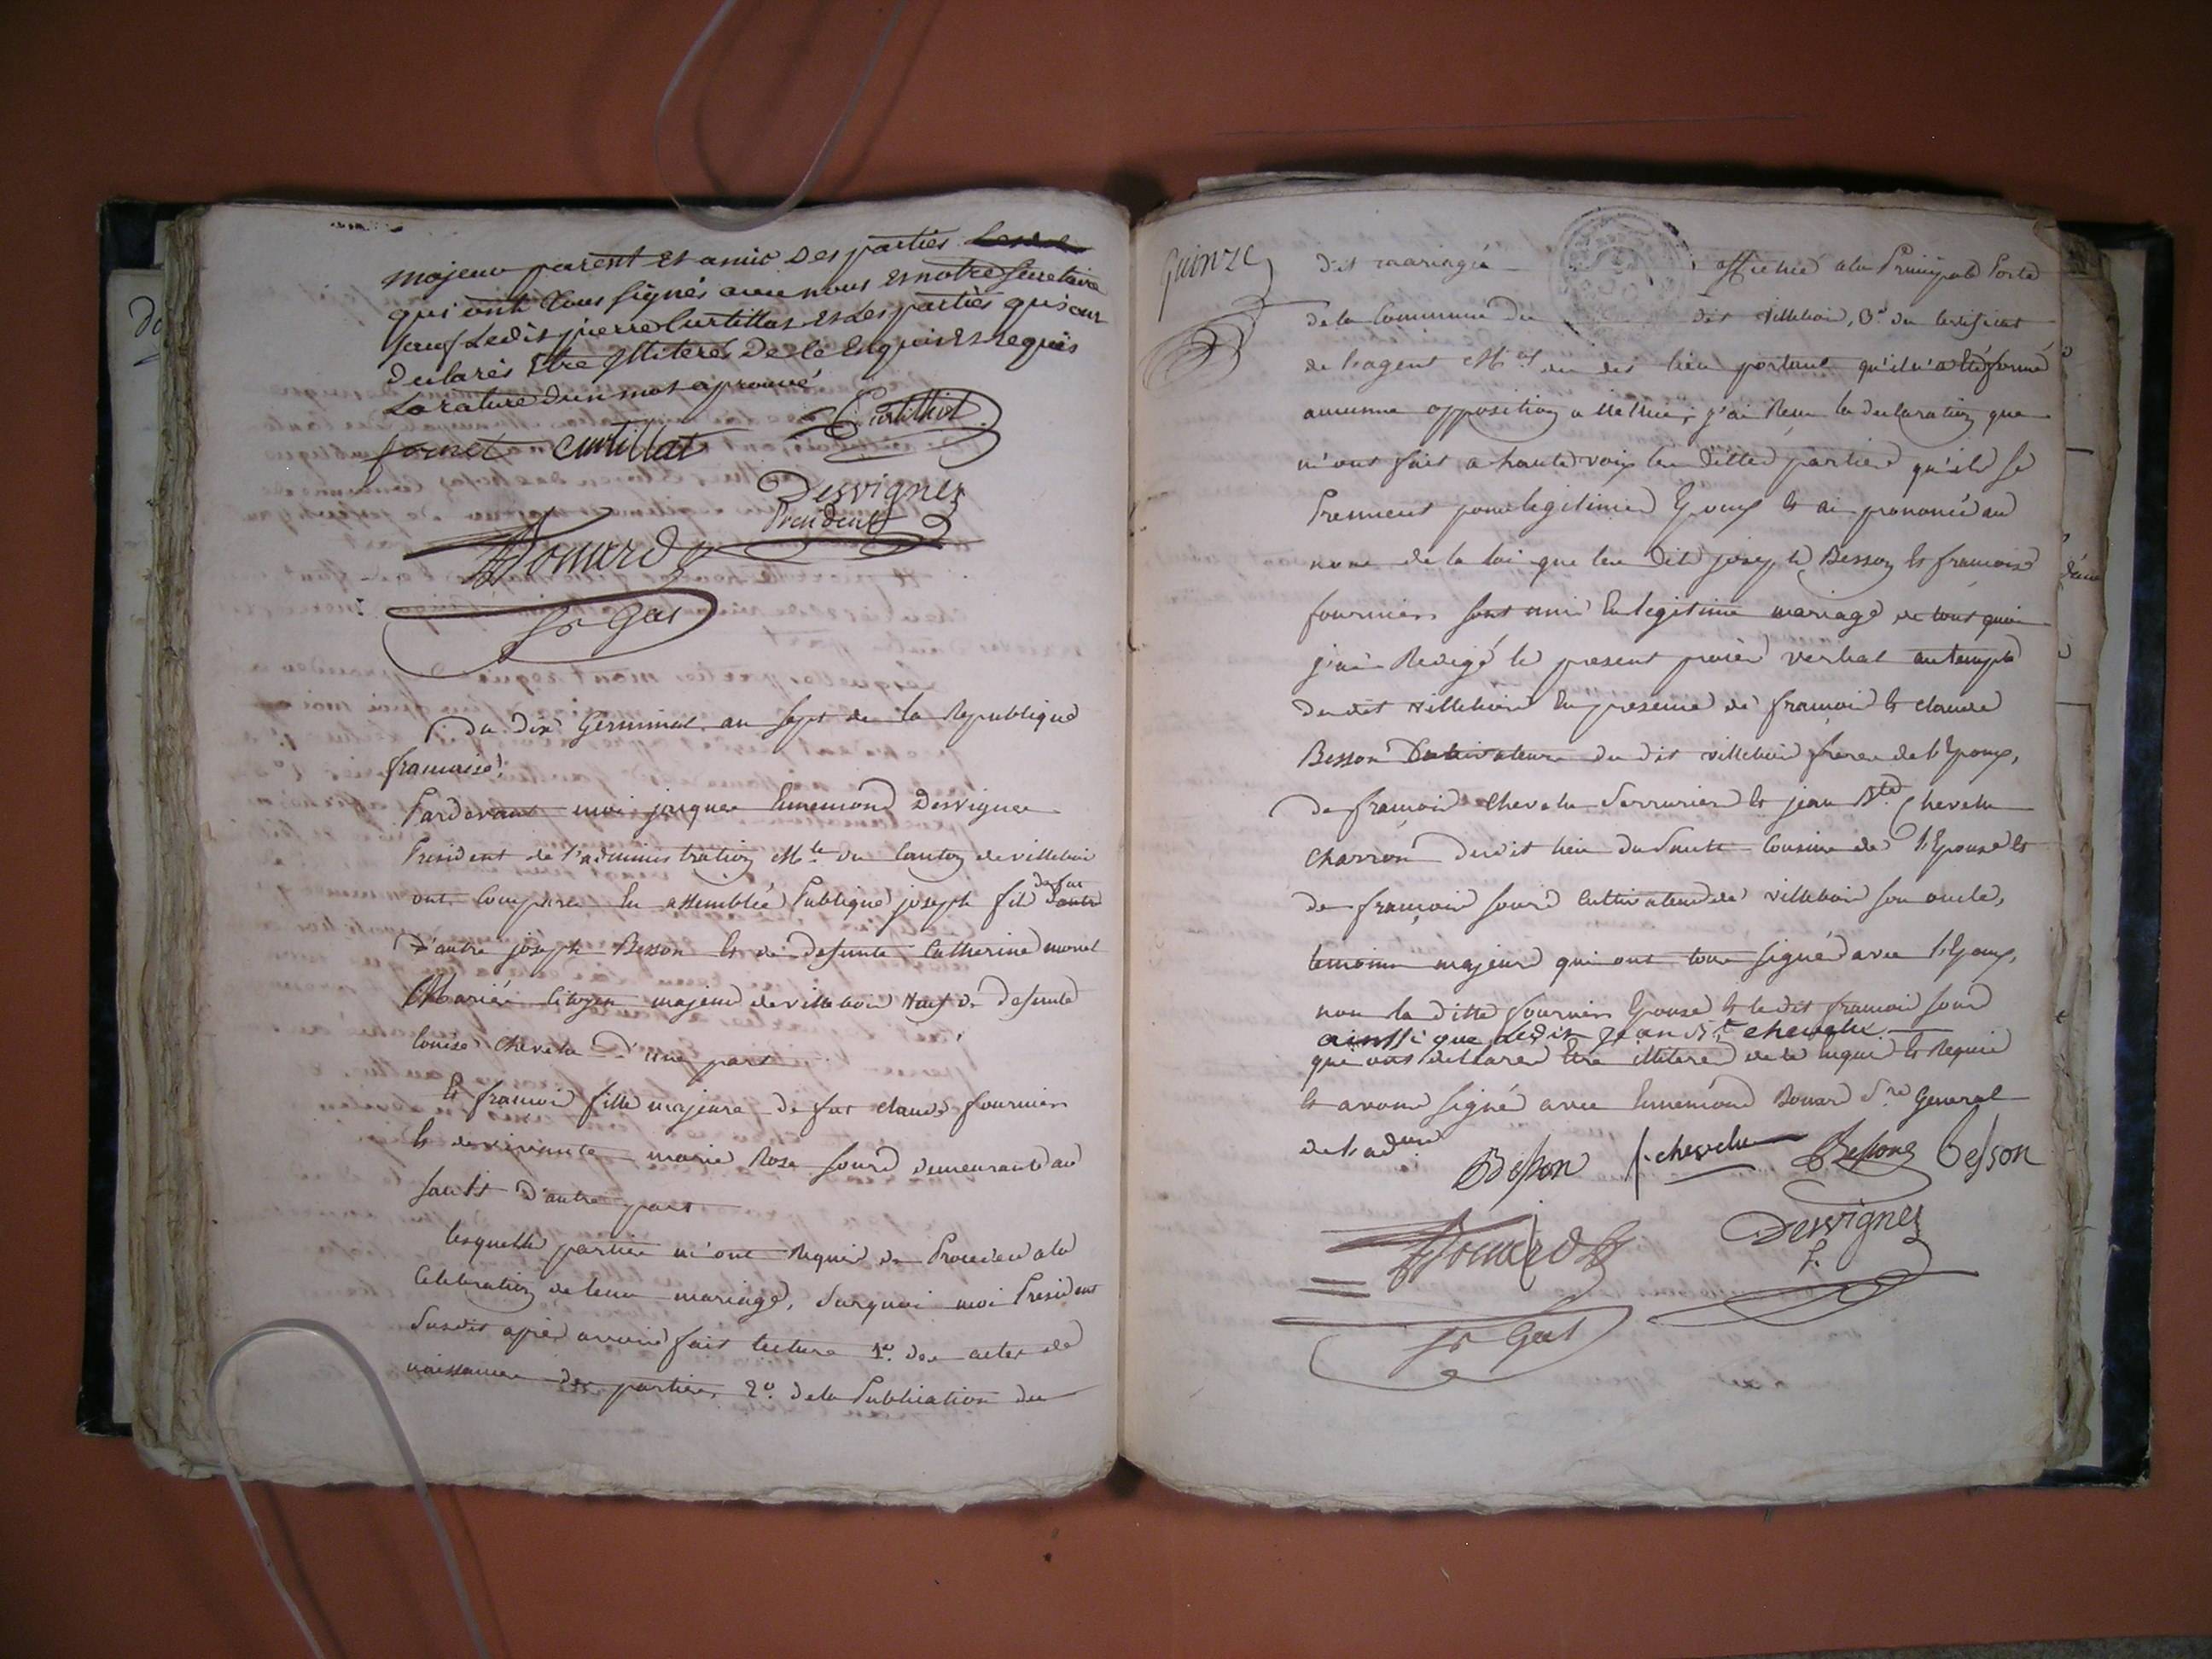 majeur parent et amis des parties
qui ont tous signés avec nous et notre secretaire
sauf Ledit pierre Curtillat et Les parties qui ont
declarés Etre illiterés de ce Enquis et requis
La rature d'un mot aprouvé
Curtillat
Curtillat
Desvignes
President
Bonnard
Sr Gal
Du dix Germinal an sept de la Republique
francaise
Pardevant moi jacques Ennemond Desvignes
President de l'administration Mle du Canton de villebois
ont Comparu En assemblée Publique joseph fils de feu
d'autre joseph Besson Et de defunte Catherine morel
Mariés Citoyen majeur de villebois veuf de defunte
louise Chevelu d'une part
Et francoise fille majeure de feu claude fournier
Et de vivante marie Rose sourd demeurante au
sault d'autre part
lesquelles parties m'ont Requis de Proceder a la
Celebration de leur mariage, surquoi moi President
susdit après avoir fait lecture 1°. des actes de
naissance des parties, 2°. de la Publication du
quinze
dit mariage affichée a la Principale Porte
de la Commune du dit villebois, 3°. du Certificat
de l'agent Mal du dit lieu portant qu'il n'a été formé
aucunne opposition a icelluy, j'ai Recu la declaration que
m'ont fait a haute voix les dittes parties qu'ils se
Prennent pour legitimes Epoux Et ai prononcé au
nom de la loi que les dits joseph Besson Et francoise
fournier sont unis En legitime mariage de tout quoi
j'ai Redigé le present procès verbal au temple
du dit villebois En presence de francois Et claude
Besson Cultivateurs du dit villebois freres de l'Epoux,
de francois Chevelu Serrurier Et jean Bte Chevelu
Charron du dit lieu du Sault Cousins de l'Epouse Et
de françois sourd Cultivateur de villebois son oncle,
temoins majeurs qui ont tous signés avec l'Epoux,
non la ditte fournier Epouse Et le dit francois sourd
ainssi que Ledit Jean Bte chevelu
qui ont declarés Etre illiterés de ce Enquis Et Requis
Et avons signé avec Ennemond Bonard Sre General
de l'adon
Besson f. chevelu Besson Besson
Bonnard
Desvignes
P.
Sr Gal